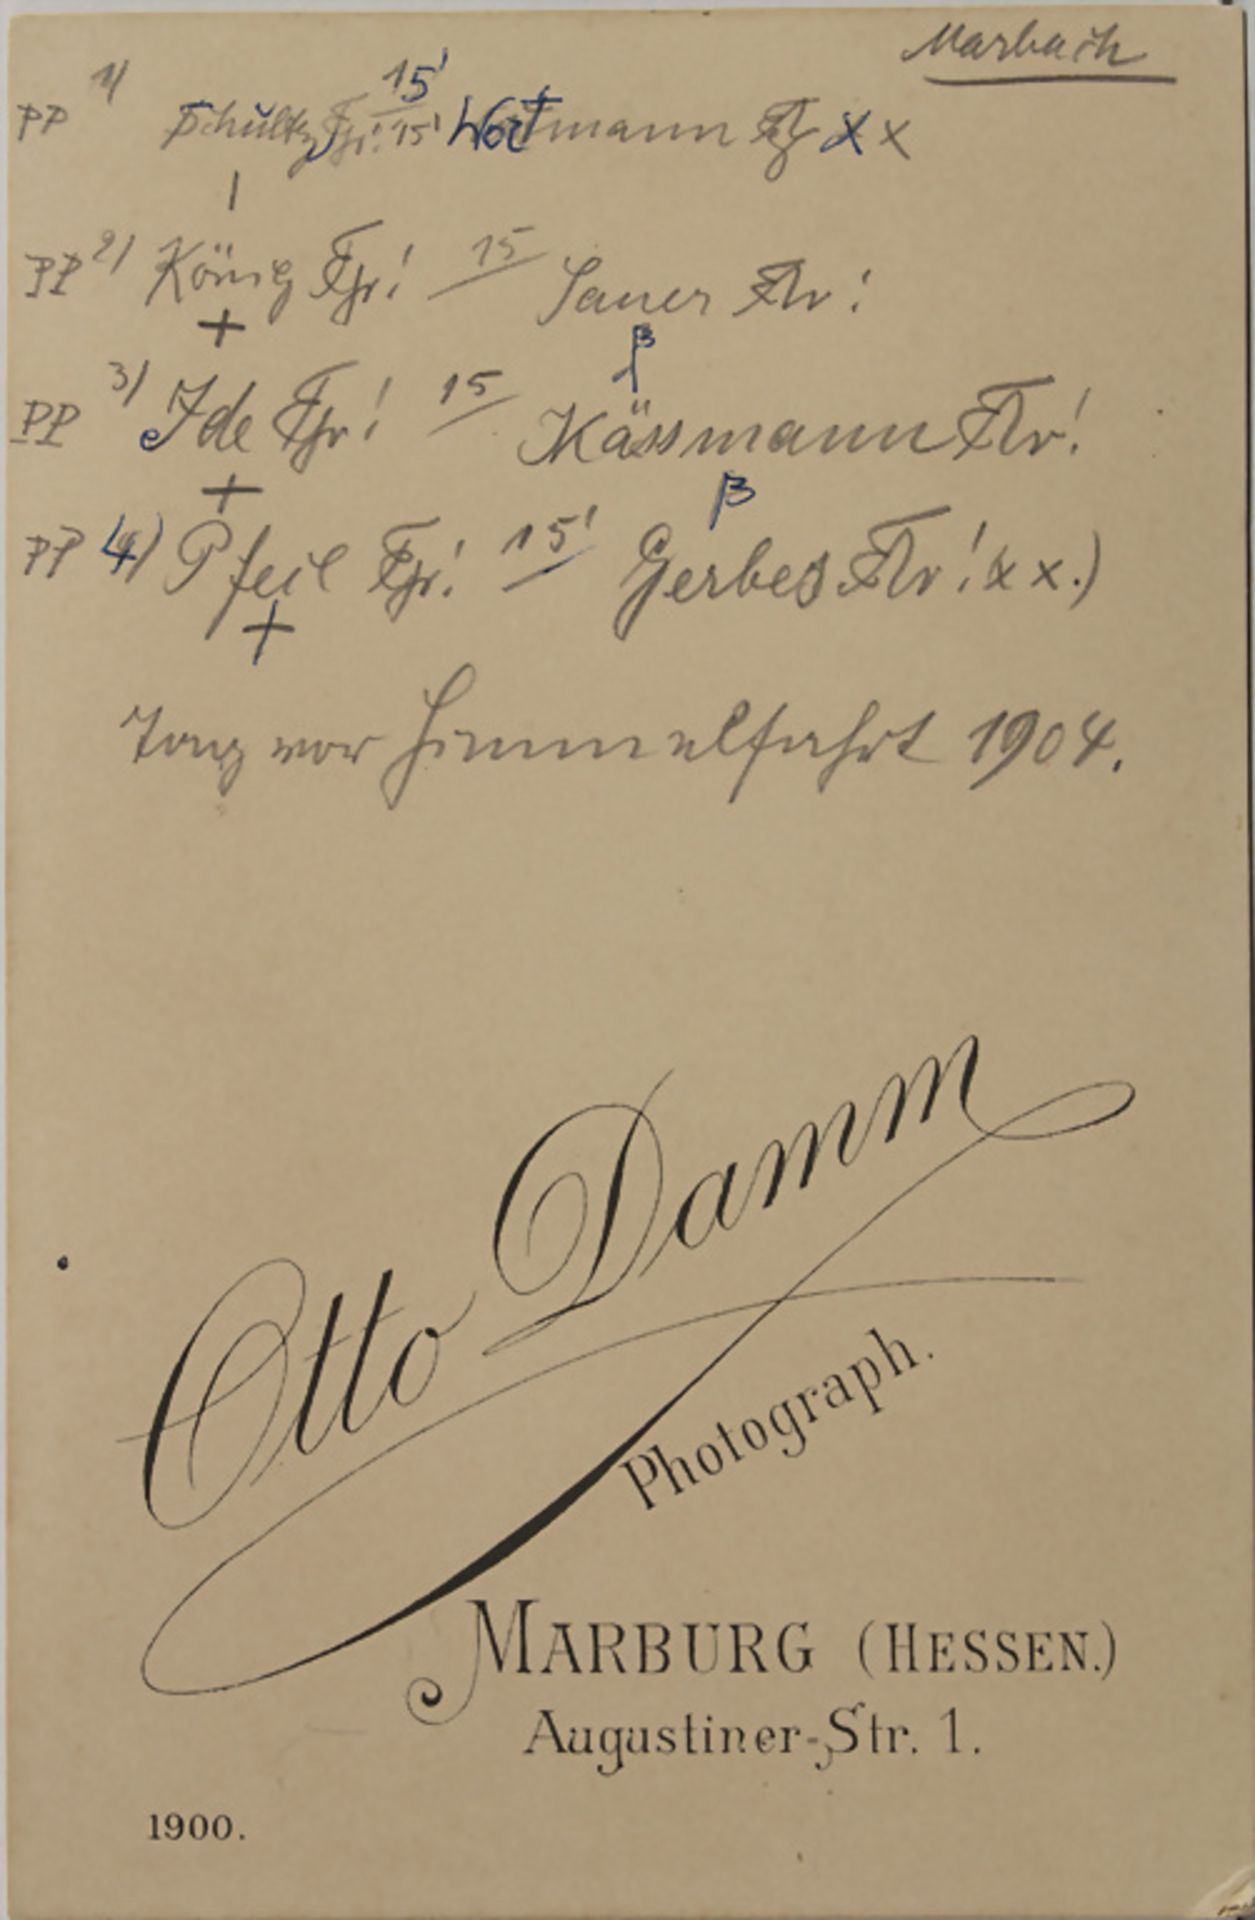 Marbach
PP 1) Schultz Fr! 15' 15' Wortmann xx
PP 2) König Fr! 15 Sauer Fr!
β
PP 3) Ide Fr! 15 Kässmann Fr!
β
PP 4) Pfeil Fr! 15' Gerbes Fr! (xx.)
Tag vor Himmelfahrt 1904.
Otto Damm
Photograph.
MARBURG (HESSEN.)
Augustiner-Str. 1.
1900.